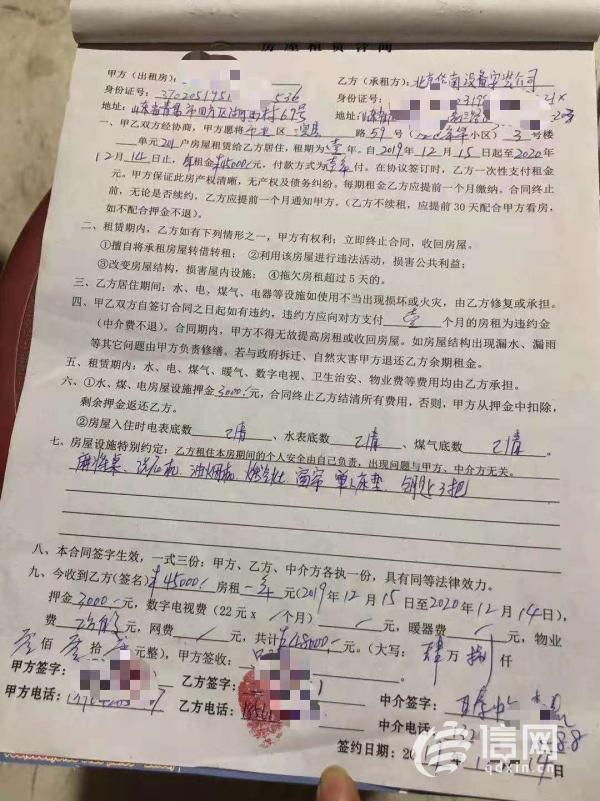 房屋租赁合同
甲方（出租房）：
乙方（承租方）：北京 设备安装公司
身份证号：3702051951 536
身份证号： 0319 21X
地址：山东省青岛市四方区 村69号
地址：山东
一、甲乙双方经协商，甲方愿将 市北 区 路 59 号（ 小区）3 号楼
单元 201 户房屋租赁给乙方居住，租期为壹年。自 2019 年 12 月 15 日起至 2020 年
12 月 14 日止，年租金 ¥45000/ 元，付款方式为 壹年 付。在协议签订时，乙方一次性支付租金
元。甲方保证此房产权清晰，无产权及债务纠纷。每期租金乙方应提前一个月缴纳。合同终止
前，无论是否续约，乙方应提前一个月通知甲方。（乙方不续租，应提前 30 天配合甲方看房，
如不配合押金不退）。
二、租赁期内，乙方如有下列情形之一，甲方有权利；立即终止合同，收回房屋。
①擅自将承租房屋转借转租； ②利用该房屋进行违法活动，损害公共利益；
③改变房屋结构，损害屋内设施； ④拖欠房租超过 5 天的。
三、乙方居住期间：水、电、煤气、电器等设施如使用不当出现损坏或火灾，由乙方修复或承担。
四、甲乙双方自签订合同之日起如有违约，违约方应向对方支付 壹 个月的房租为违约金
（中介费不退）。合同期内，甲方不得无故提高房租或收回房屋。如房屋结构出现漏水、漏雨
等其它问题由甲方负责修缮。若与政府拆迁、自然灾害甲方退还乙方余期租金。
五、租赁期内：水、电、煤气、暖气、数字电视、卫生治安、物业费等费用均由乙方承担。
六、①水、煤、电房屋设施押金 3000/ 元，合同终止乙方结清所有费用，否则，甲方从押金中扣除，
剩余押金返还乙方。
②房屋入住时电表底数 已清 、水表底数 已清 、煤气底数 已清 。
七、房屋设施特别约定：乙方租住本房期间的个人安全由自己负责，出现问题与甲方、中介方无关。
麻将桌、洗衣机、油烟机、燃气灶、窗帘、单人床垫、钥匙3把
八、本合同签字生效，一式三份：甲方、乙方、中介方各执一份，具有同等法律效力。
九、今收到乙方(签名) ¥45000/ 房租 一年 元(2019 年 12 月 15 日至 2020 年 12 月 14 日)，
押金 3000/ 元，数字电视费（22 元 x / 个月） / 元，暖器费 / 元，物业
费 元，网费 / 元，共计 ¥48000/ 元。（大写： 肆 万 捌 仟
零 佰 零 拾 零 元整），甲方签收：
甲方签字：
乙方签字：
中介签字：
甲方电话：
乙方电话：
中介电话：
签约日期：20 14日
信网
qdxin.cn